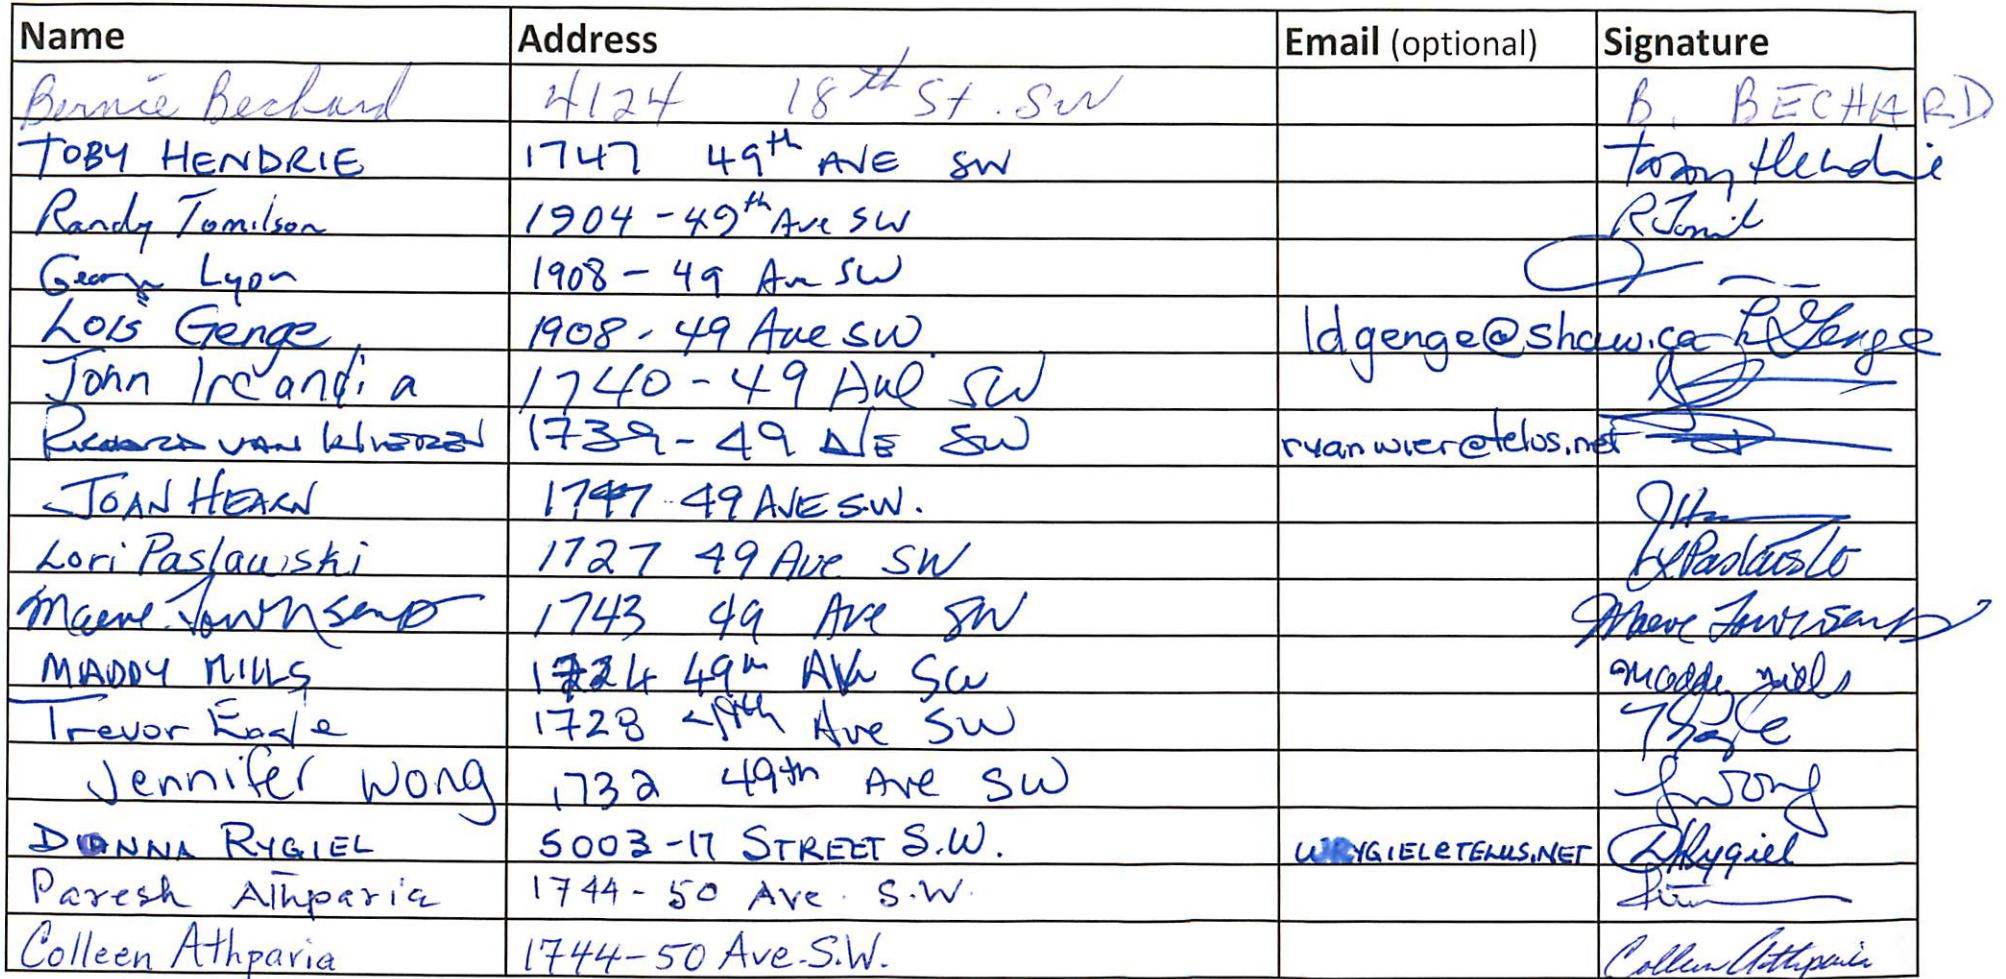 Name Address Email (optional) Signature
Bernie Bechard 4124 18th St. SW B. BECHARD
TOBY HENDRIE 1747 49th AVE SW Toby Hendrie
Randy Tomilson 1904 - 49th Ave SW R Tomil
George Lyon 1908 - 49 Av SW
Lois Genge 1908 - 49 Ave SW ldgenge@shaw.ca L Genge
John Ircandia 1740 - 49 Ave SW
RICHARD VAN WIEREN 1739 - 49 AVE SW rvanwier@telus.net
JOAN HEARN 1747 49 AVE S.W. JH
Lori Paslawski 1727 49 Ave SW Paslawski
Maeve Townsend 1743 49 Ave SW Maeve Townsend
MADDY MILLS 1724 49th AVe SW Maddy Mills
Trevor Eagle 1728 49th Ave SW
Jennifer Wong 1732 49th Ave SW J Wong
DONNA RYGIEL 5003 - 17 STREET S.W. WRYGIEL@TELUS.NET D Rygiel
Paresh Athparia 1744 - 50 Ave. S.W.
Colleen Athparia 1744-50 Ave. S.W. Colleen Athparia